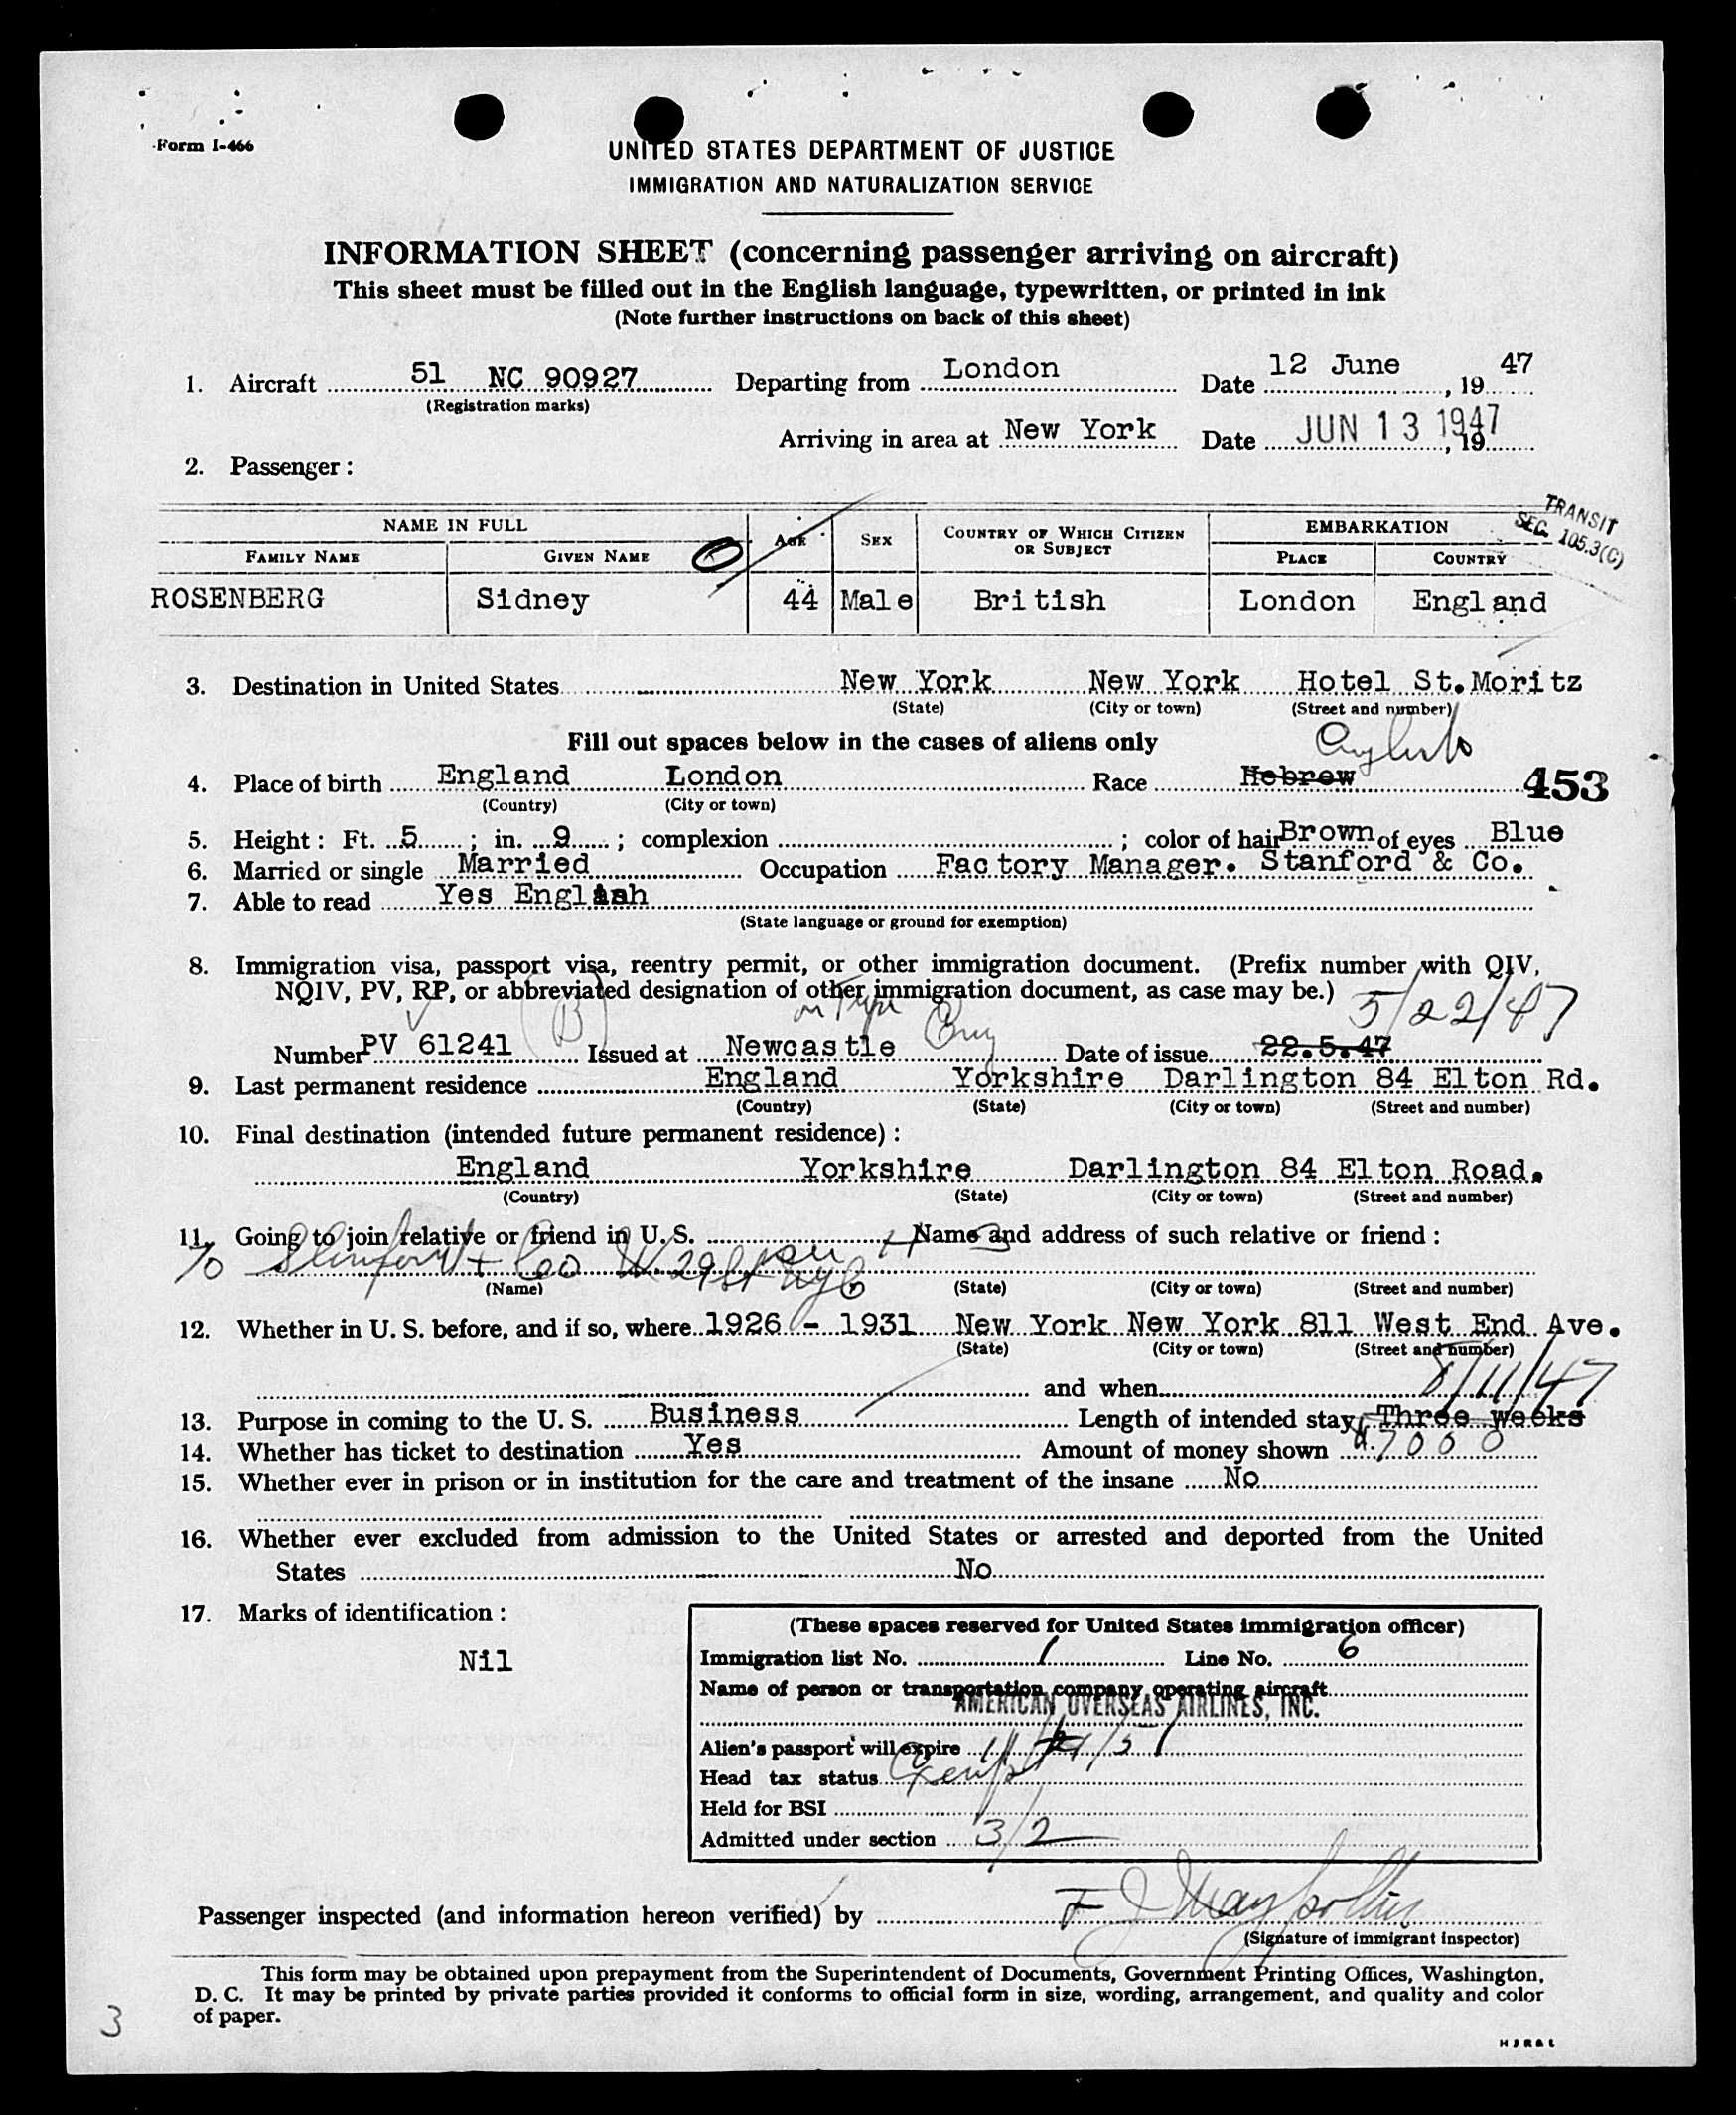 Form I-466
UNITED STATES DEPARTMENT OF JUSTICE
IMMIGRATION AND NATURALIZATION SERVICE
INFORMATION SHEET (concerning passenger arriving on aircraft)
This sheet must be filled out in the English language, typewritten, or printed in ink
(Note further instructions on back of this sheet)
1. Aircraft 51 NC 90927 Departing from London Date 12 June, 1947
(Registration marks)
Arriving in area at New York Date JUN 13 1947, 19
2. Passenger:
TRANSIT
SEC. 105.3(C)
NAME IN FULL Age Sex Country of Which Citizen or Subject EMBARKATION
Family Name Given Name Place Country
ROSENBERG Sidney 44 Male British London England
3. Destination in United States New York New York Hotel St. Moritz
(State) (City or town) (Street and number)
Fill out spaces below in the cases of aliens only
4. Place of birth England London Race Hebrew 453
(Country) (City or town)
5. Height: Ft. 5; in. 9; complexion ; color of hair Brown of eyes Blue
6. Married or single Married Occupation Factory Manager. Stanford & Co.
7. Able to read Yes English
(State language or ground for exemption)
8. Immigration visa, passport visa, reentry permit, or other immigration document. (Prefix number with QIV,
NQIV, PV, RP, or abbreviated designation of other immigration document, as case may be.) 5/22/47
(B)
Number PV 61241 Issued at Newcastle Eng Date of issue 22.5.47
9. Last permanent residence England Yorkshire Darlington 84 Elton Rd.
(Country) (State) (City or town) (Street and number)
10. Final destination (intended future permanent residence):
England Yorkshire Darlington 84 Elton Road.
(Country) (State) (City or town) (Street and number)
11. Going to join relative or friend in U. S. Name and address of such relative or friend:
c/o & Co W. 29 St nyc
(Name) (State) (City or town) (Street and number)
12. Whether in U. S. before, and if so, where 1926 - 1931 New York New York 811 West End Ave.
(State) (City or town) (Street and number)
and when 8/11/47
13. Purpose in coming to the U. S. Business Length of intended stay Three weeks
14. Whether has ticket to destination Yes Amount of money shown 7000
15. Whether ever in prison or in institution for the care and treatment of the insane No
16. Whether ever excluded from admission to the United States or arrested and deported from the United
States No
17. Marks of identification:
Nil
(These spaces reserved for United States immigration officer)
Immigration list No. 1 Line No. 6
Name of person or transportation company operating aircraft
AMERICAN OVERSEAS AIRLINES, INC.
Alien's passport will expire
Head tax status Exempt
Held for BSI
Admitted under section 3/2
Passenger inspected (and information hereon verified) by F J
(Signature of immigrant inspector)
This form may be obtained upon prepayment from the Superintendent of Documents, Government Printing Offices, Washington,
D. C. It may be printed by private parties provided it conforms to official form in size, wording, arrangement, and quality and color
of paper.
3